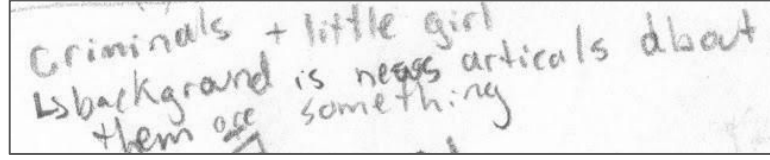 Criminals + little girl
↳ background is news articals about
them or something